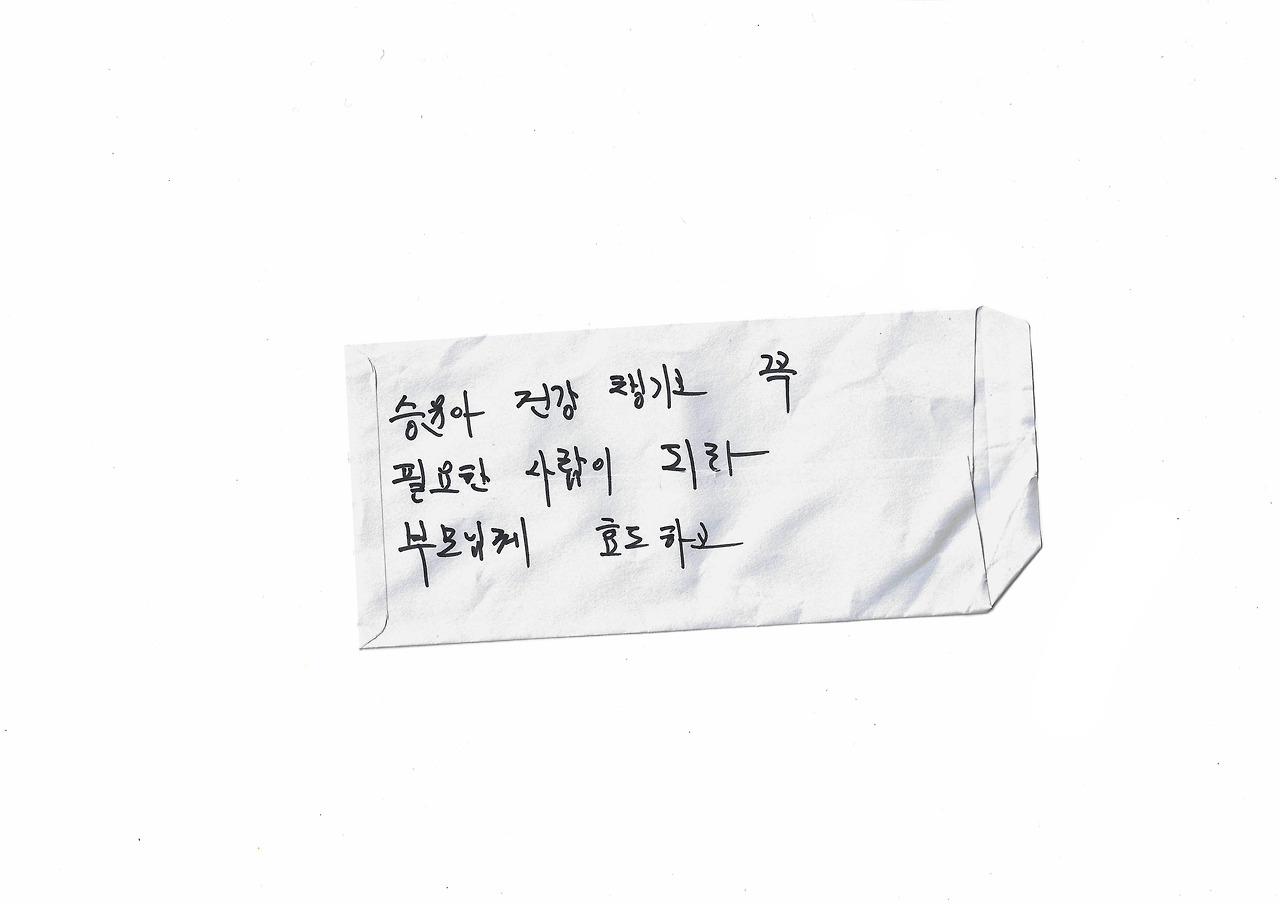 승윤아 건강 챙기고 꼭
필요한 사람이 되라
부모님께 효도하고